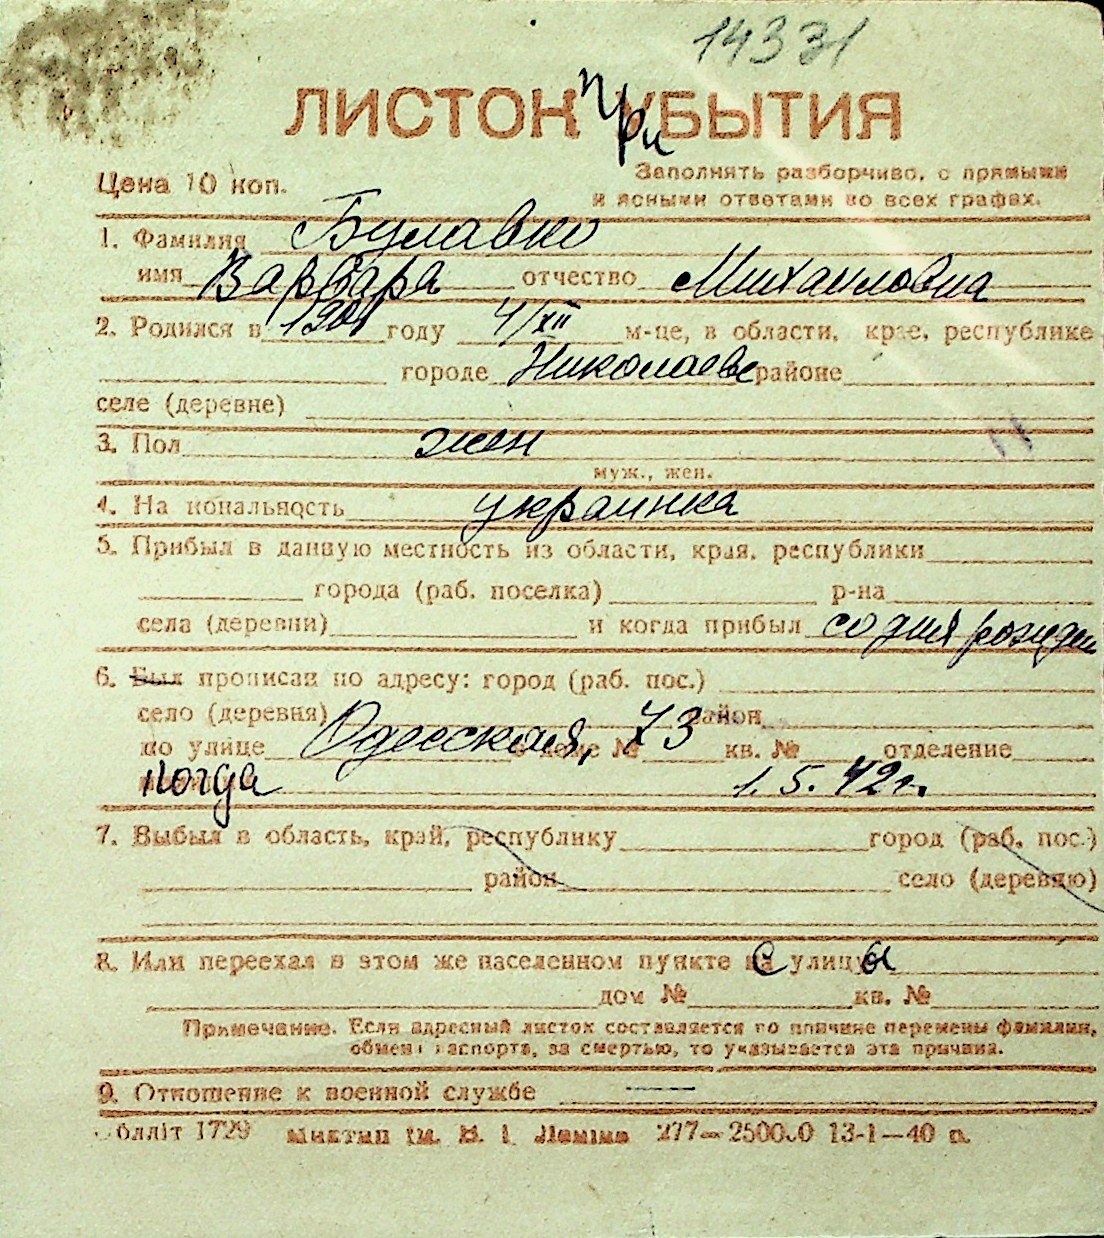 14331
ЛИСТОК При УБЫТИЯ
Цена 10 коп.
Заполнять разборчиво, с прямыми
и ясными ответами во всех графах.
1. Фамилия Булавко
имя Варвара отчество Михаиловна
2. Родился в 1901 году 4/XII м-це, в области, крае, республике
городе Николаеве районе
селе (деревне)
3. Пол жен
муж., жен.
4. На иональность украинка
5. Прибыл в данную местность из области, края, республики
города (раб. поселка) р-на
села (деревни) и когда прибыл со дня рожден
6. Был прописан по адресу: город (раб. пос.)
село (деревня) район
по улице Одесская, 73 доме № кв. № отделение
когда 1.5.42 г.
7. Выбыл в область, край, республику город (раб. пос.)
район село (деревню)
8. Или переехал в этом же населенном пункте с улицы
дом № кв. №
Примечание. Если адресный листок составляется по причине перемены фамилии,
обмена паспорта, за смертью, то указывается эта причина.
9. Отношение к военной службе —
блліт 1729 277—25000 13-1—40 р.